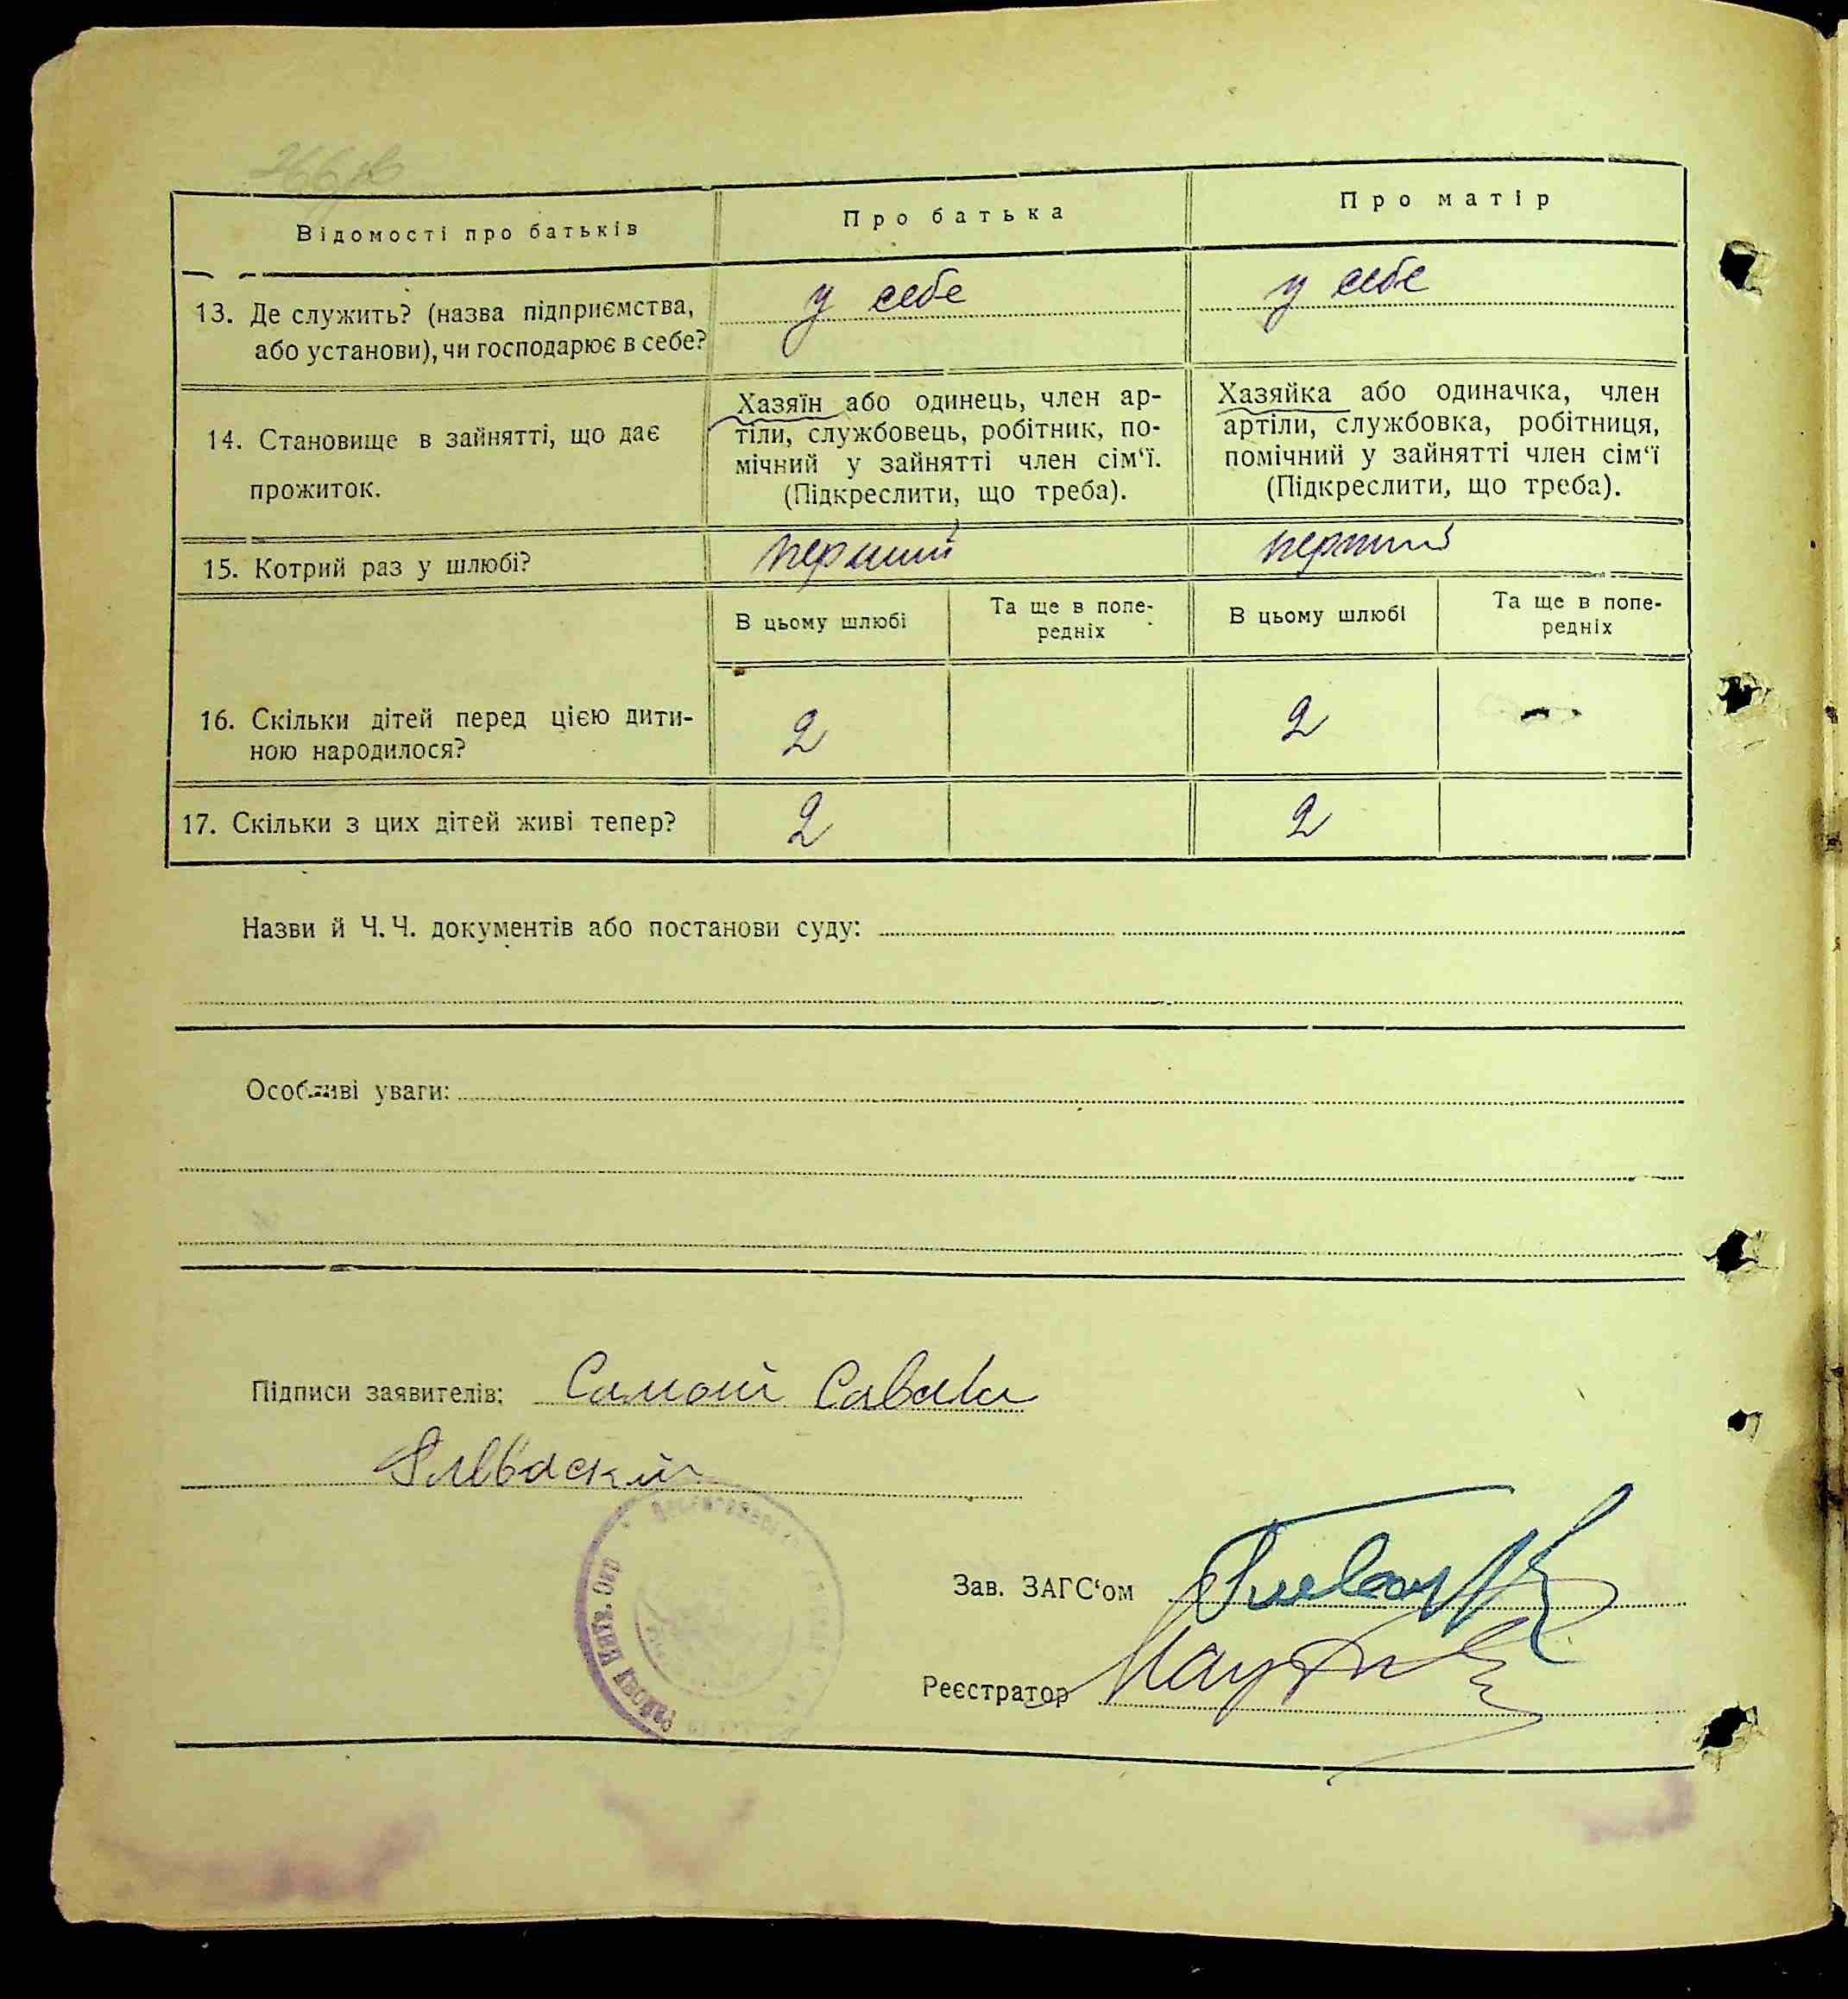 Відомості про батьків
Про батька
Про матір
13. Де служить? (назва підприємства, або установи), чи господарює в себе?
у себе
у себе
14. Становище в зайнятті, що дає прожиток.
Хазяїн або одинець, член ар-
тіли, службовець, робітник, по-
мічний у зайнятті член сім‘ї.
(Підкреслити, що треба).
Хазяйка або одиначка, член
артіли, службовка, робітниця,
помічний у зайнятті член сім‘ї
(Підкреслити, що треба).
15. Котрий раз у шлюбі?
перший
перший
В цьому шлюбі
Та ще в попе-
редніх
В цьому шлюбі
Та ще в попе-
редніх
16. Скільки дітей перед цією дити-
ною народилося?
2
2
-
17. Скільки з цих дітей живі тепер?
2
2
Назви й Ч. Ч. документів або постанови суду:
Особливі уваги:
Підписи заявителів:
Зав. ЗАГС‘ом
Реєстратор